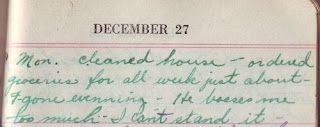 DECEMBER 27
Mon. cleaned house - ordered
groceries for all week just about -
gone evenning - He bosses me
too much - I can't stand it -